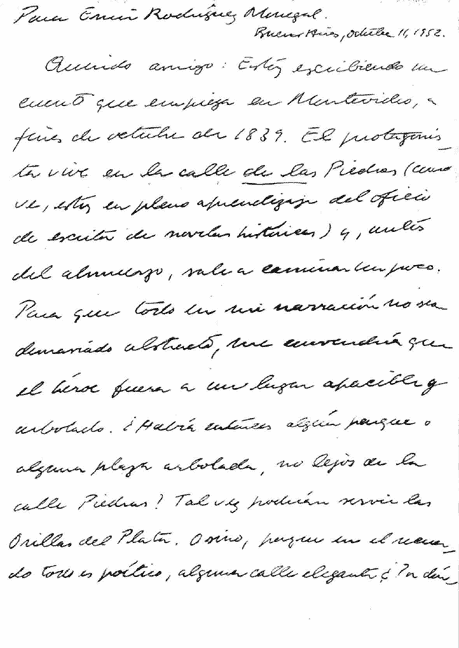 Para Emir Rodríguez Monegal.
Buenos Aires, octubre 11, 1952.
Querido amigo: Estoy escribiendo un
cuento que empieza en Montevideo, a
fines de octubre de 1839. El protagonis-
ta vive en la calle de las Piedras (como
ve, estoy en pleno aprendizaje del oficio
de escritor de novelas históricas) y, antes
del almuerzo, sale a caminar un poco.
Para que todo en mi narración no sea
demasiado abstracto, me convendría que
el héroe fuera a un lugar apacible y
arbolado. ¿Había entonces algún parque o
alguna plaza arbolada, no lejos de la
calle Piedras? Tal vez podrían servir las
Orillas del Plata. O sino, porque en el recuer-
do todo es poético, alguna calle elegante ¿Por dón-